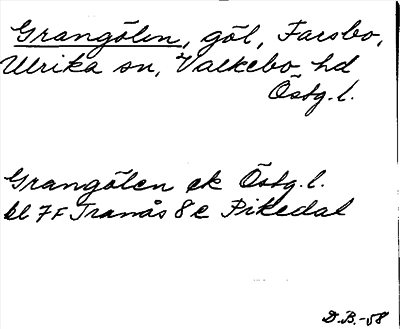 Grangölen, göl, Farsbo,
Ulrika sn, Valkebo hd
Östg.l.
Grangölen ek Östg.l.
bl 7F Tranås 8e Pikedal
D.B.-58